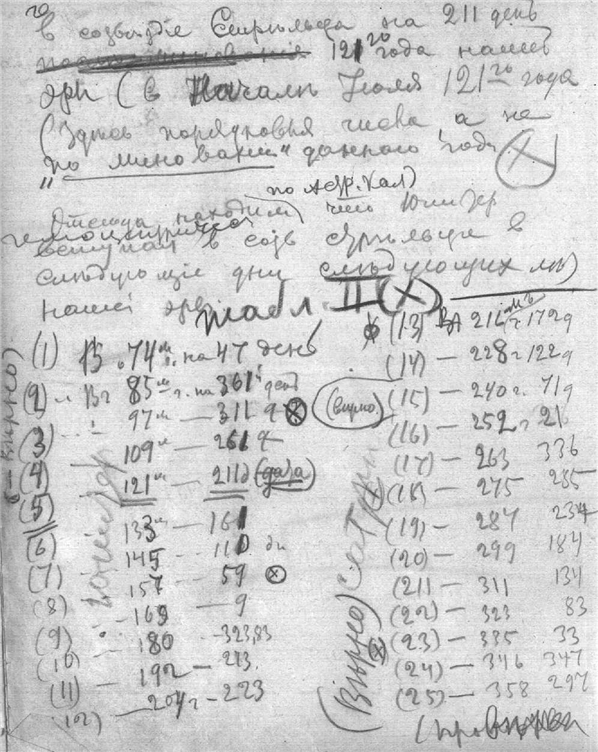 в созвѣздіе Стрѣльца на 211 день
121го года нашей
эры (въ Началѣ Іюля 121го года
(Здѣсь порядковыя числа, а не
"по миновании" даннаго года
по Астр. Кал)
Отсюда находимъ, что Юпитер
вступал в созв Стрѣльца в
слѣдующіе дни слѣдующих лѣт)
нашей эры
Табл. II (X)
(1) В 74м г. на 47 день
(2) В 85м г. на 361й день
(3) 97м — 311 д
(4) 109м — 261 д
(5) 121м — 211д (дата)
(6) 133м — 161
(7) 145 — 110 дн
(8) 157 — 59
(9) 169 — 9
(10) 180 — 323,83
(11) 192 — 273.
(12) — 204г — 223
Юпитер
(13) Въ 216м г 172д
(14) — 228г 122д
(15) — 240г. 71д
(16) — 252г. 21
(17) — 263 336
(18) — 275 285
(19) — 287 234
(20) — 299 184
(21) — 311 134
(22) — 323 83
(23) — 335 33
(24) — 346 347
(25) — 358 297
(вѣрно)
(Вѣрно)
(Вѣрно)